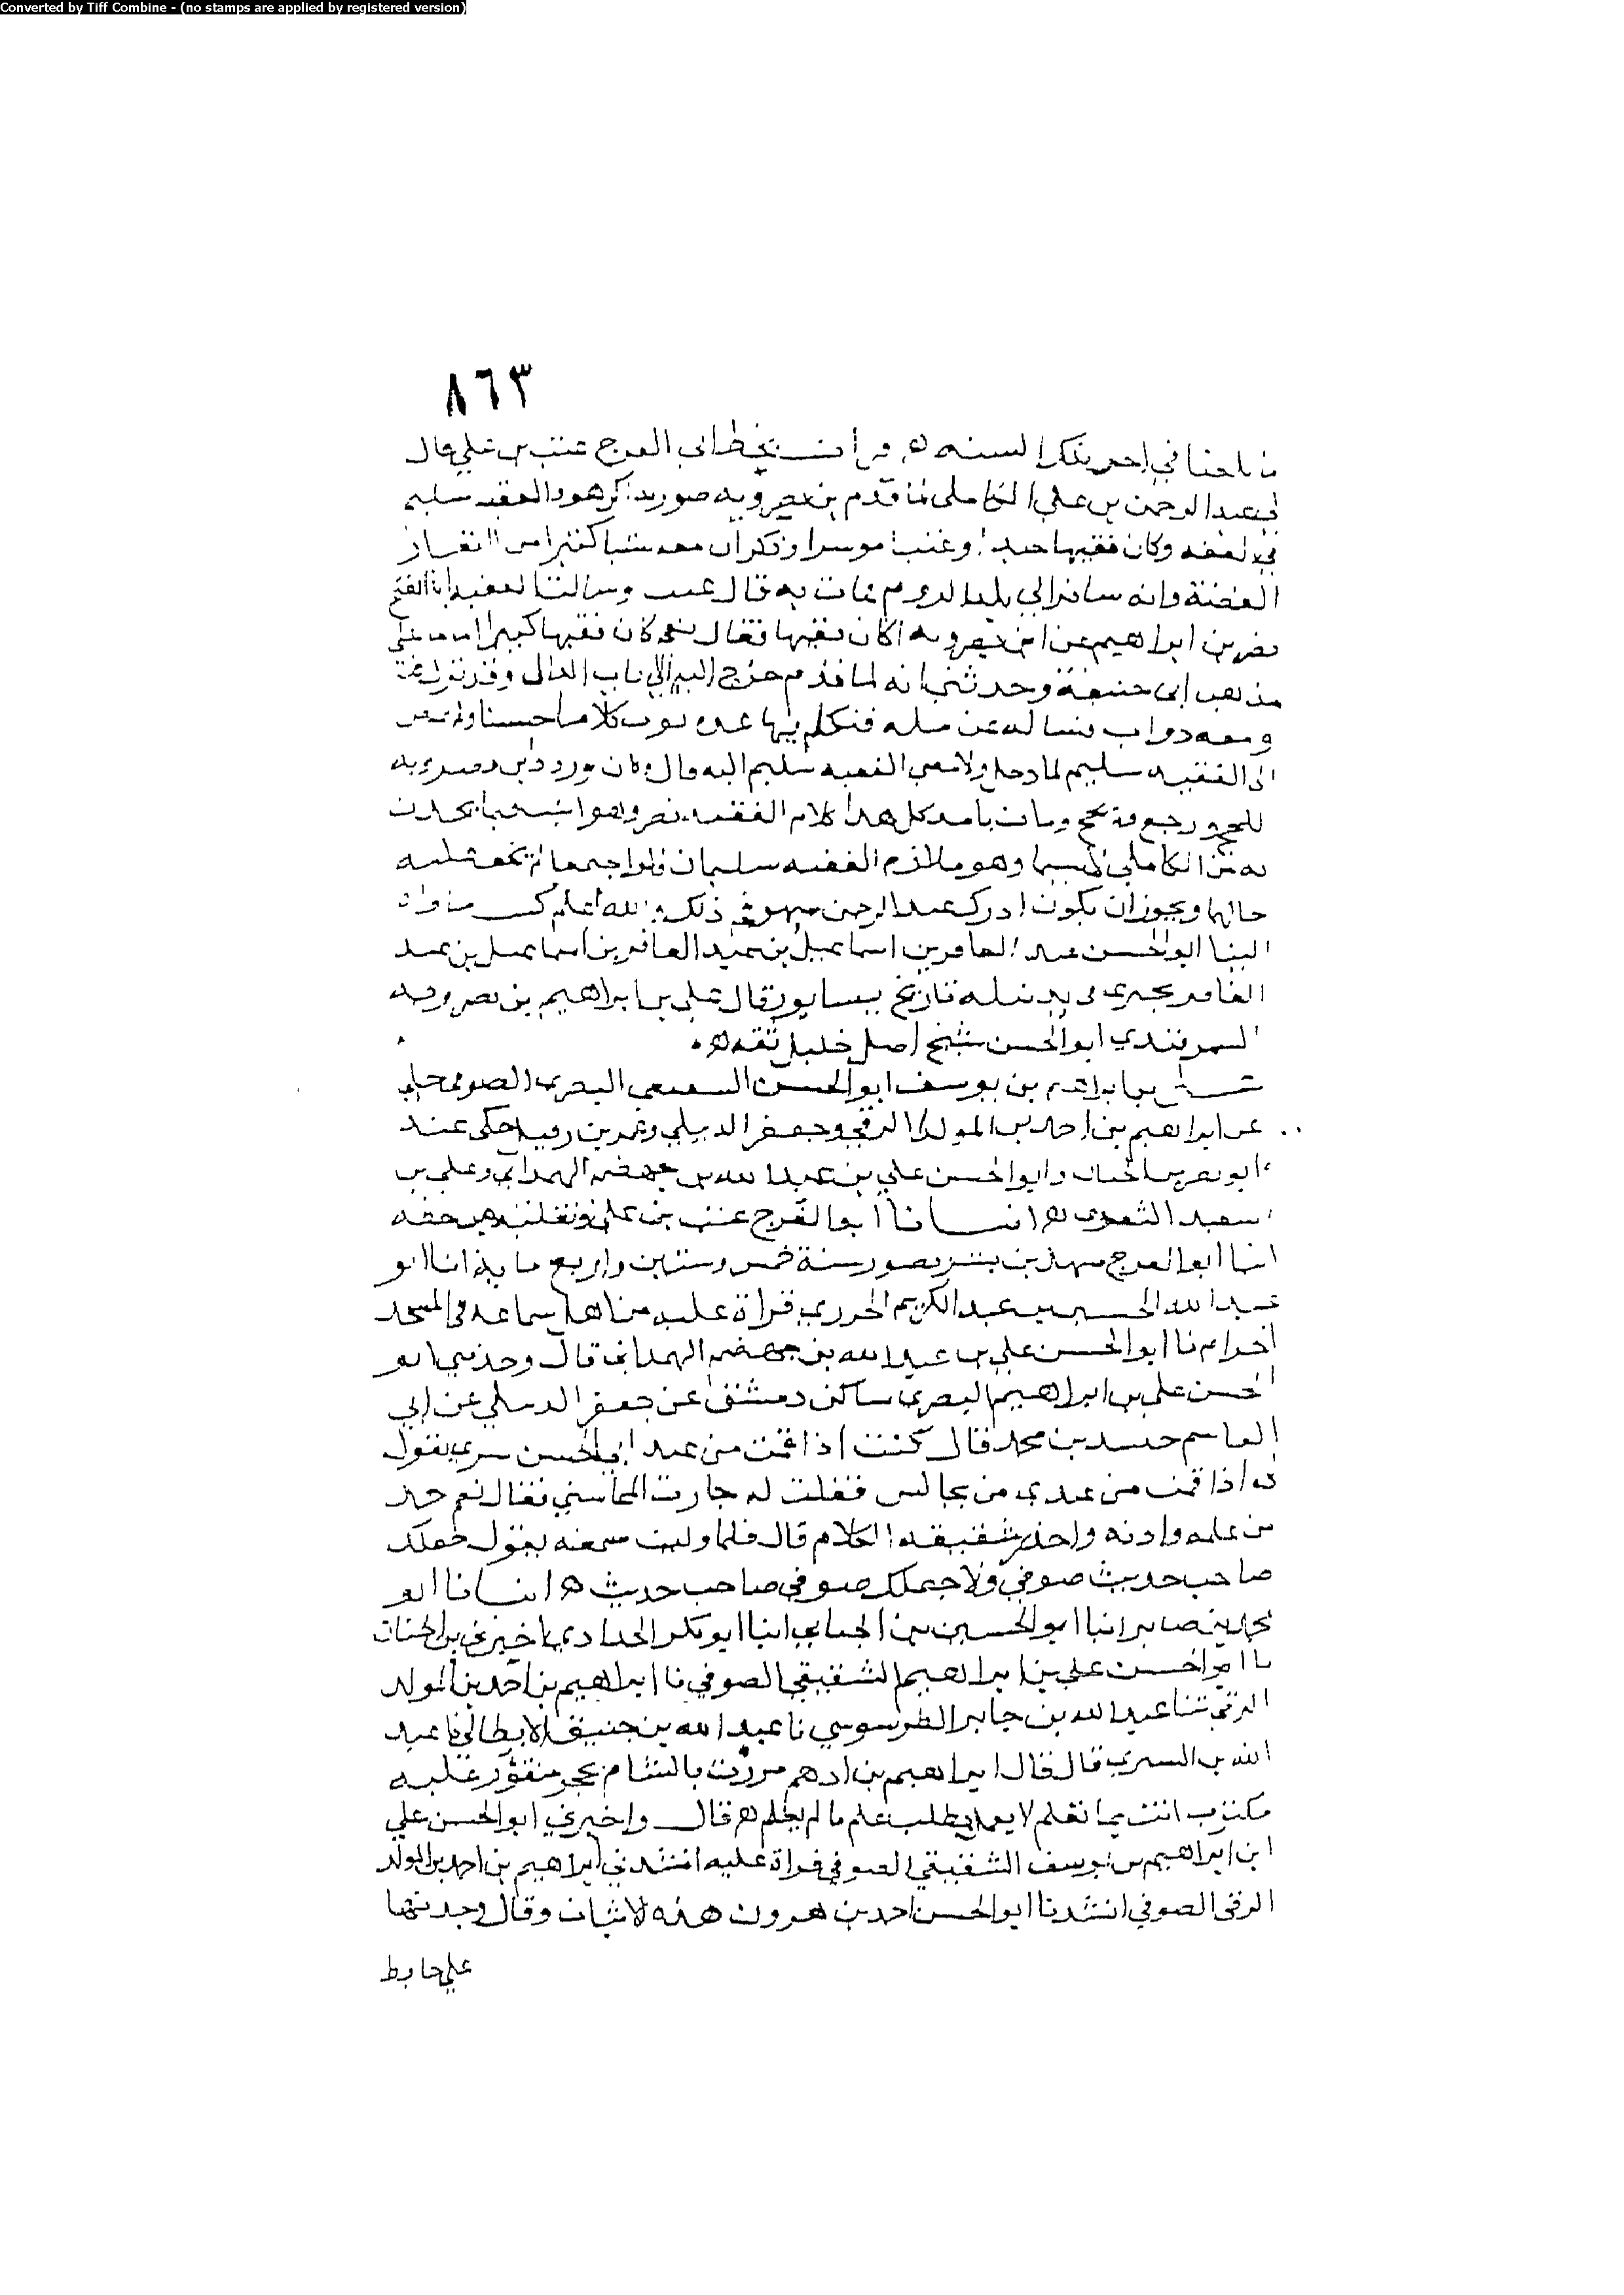 Converted by Tiff Combine - (no stamps are applied by registered version)
٨٦٣
في تلك السنه ه قرات بخط ابي الفرج غيث بن علي قال
لي عبد الرحمن بن علي الكاملي لما قدم بن نصرويه صور الفقيه سليم
في الفقه وكان فقيها جيدا وغنيا موسرا وذكر ان معه شيا كثيرا من
الفضة وانه سافر الي بلد الروم فمات به قال غيث وسالت الفقيه ابا الفتح
نصر بن ابراهيم عن ابن نصرويه اكان فقيها فقال نعم كان فقيها كبيرا علي
مذهب ابي حنيفة وحدثني انه لما قدم خرج اليه الي باب
ومعه دواب فساله عن مسله فتكلم فيها كلاما حسنا ولم يمض
الى الفقيه سليم لما دخل ولا مضي الفقيه سليم اليه قال وكان ورود بن نصرويه
للحج ورجع ومات بامد كل هذا كلام الفقيه نصر وهو
الكاملي وهو ملازم الفقيه سليمان ولو اجتمعا لم يخف عليه
حالهما ويجوز ان يكون ادرك عبد الرحمن سهو في ذلك والله اعلم كتب
الينا ابو الحسن عبد الغافر بن اسماعيل بن عبد الغافر بن اسماعيل بن عبد
الغافر تاريخ نيسابور قال علي بن ابراهيم بن نصرويه
السمرقندي ابو الحسن شيخ اصل جليل ثقه ه
علي بن ابراهيم بن يوسف ابو الحسن الشقيقي البصري الصوفي حكي
عن ابراهيم بن احمد بن المولد الرقي وجعفر الديبلي حكى عنه
ابو نصر بن الجبان وابو الحسن علي بن عبد الله بن جهضم الهمداني وعلي بن
سعيد ه انبانا ابو الفرج غيث بن علي ونقلته من خطه
انبا ابو الفرج بن بشر بصور سنة خمس وستين واربع مايه انا ابو
عبد الله الحسين بن عبد الكريم الجزري قراة عليه من اصل سماعه في المسجد
الحرام نا ابو الحسن علي بن عبد الله بن جهضم الهمداني قال وحدثني ابو
الحسن علي بن ابراهيم البصري ساكن دمشق عن جعفر الديبلي عن ابي
القاسم جنيد بن محمد قال كنت اذا قمت من عند ابي الحسن سري يقول
لي اذا قمت من عندي من تجالس فقلت له حارث المحاسبي فقال نعم خذ
من علمه وادبه واحذر شقيقه الكلام قال فلما وليت سمعته يقول جعلك
صاحب حديث صوفي ولا جعلك صوفي صاحب حديث ه انبانا ابو
محمد بن صابر انبا ابو الحسين بن الحنايي انبا ابو بكر الحدادي اخبرني بن الجبان
نا ابو الحسن علي بن ابراهيم الشقيقي الصوفي نا ابراهيم بن احمد بن المولد
الرقي ثنا عبد الله بن جابر الطرسوسي نا عبد الله بن خبيق الانطاكي نا عبد
الله بن السري قال قال ابراهيم بن ادهم مررت بالشام بحجر منقور عليه
مكتوب انت بما تعلم لا يطلب علم ما لم يعلم ه قال واخبرني ابو الحسن علي
ابن ابراهيم بن يوسف الشقيقي الصوفي قراة عليه انشدني ابراهيم بن احمد بن المولد
الرقي الصوفي انشدنا ابو الحسن احمد بن هرون هذه الابيات وقال وجدتها
علي حايط